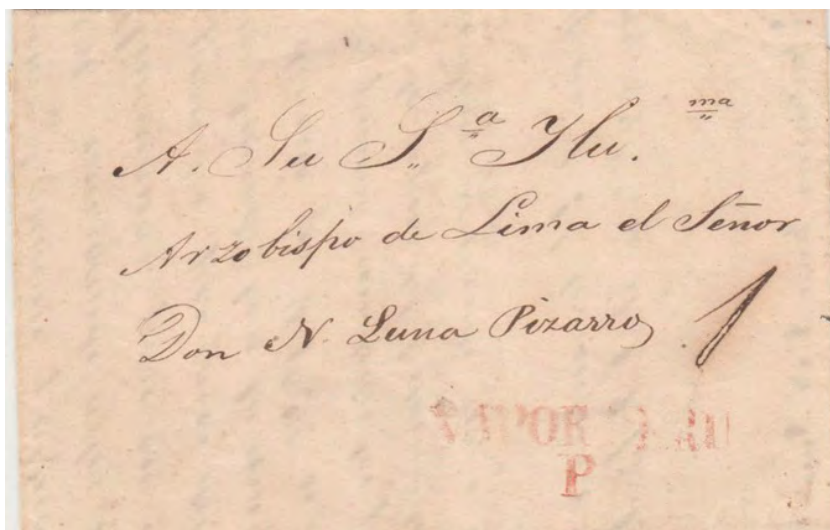 A. Su S.ª Ylu.ma
Arzobispo de Lima el Señor
Don N. Luna Pizarro
1
VAPOR
P